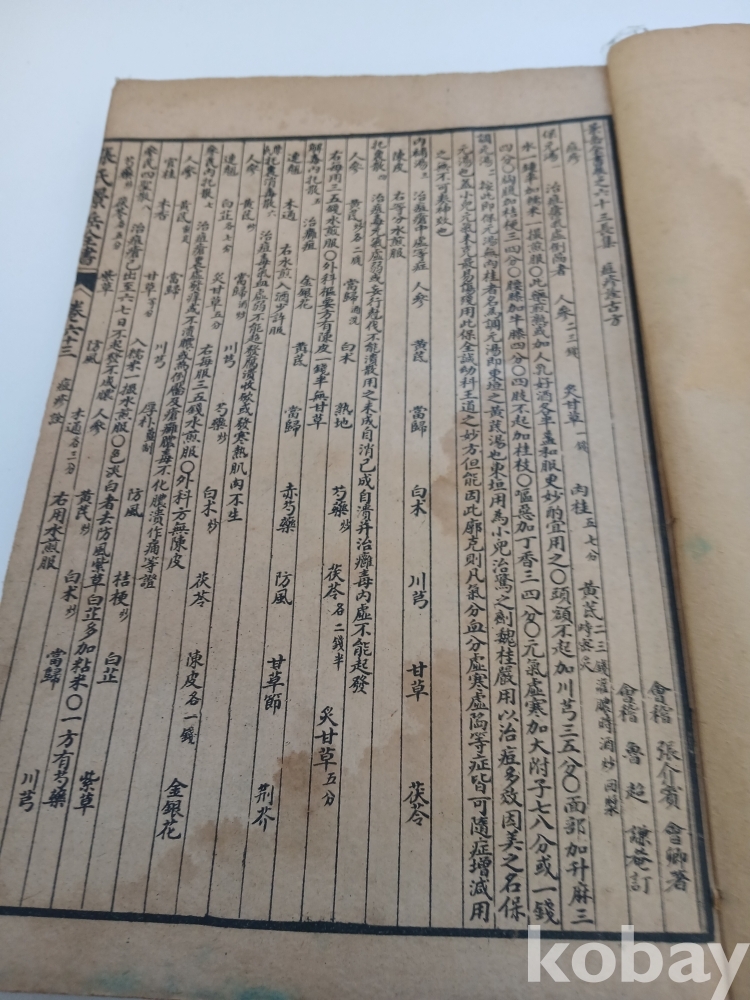 景岳全書卷之六十三長集 痘疹詮古方
會稽 張介賓 會卿著
會稽 魯超 謙菴訂
痘疹
保元湯一 治痘瘡氣虛倒陷者 人參二三錢 炙甘草一錢 肉桂五七分 黃茋二三錢灌膿時酒炒回漿時蜜炙
水一鍾半加糯米一撮煎服〇此藥煎熟加人乳好酒各半盞和服更妙酌宜用之〇頭額不起加川芎三五分〇面部加升麻三
四分〇胸腹加桔梗三四分〇腰膝加牛膝四分〇四肢不起加桂枝〇嘔惡加丁香三四分〇元氣虛寒加大附子七八分或一錢
調元湯二 按此即保元湯無肉桂者名為調元湯即東垣之黃茋湯也東垣用為小兒治驚之劑魏桂巖用以治痘多效因美之名保
元湯也蓋小兒元氣未充最易傷殘用此保全誠幼科王道之妙方但能因此廓充則凡氣分血分虛寒虛陷等症皆可隨症增減用
之無不可奏神效也
內補湯三 治痘瘡中虛等症 人參 黃茋 當歸 白朮 川芎 甘草 茯苓
陳皮 右等分水煎服
托裏散四 治痘毒元氣虛弱或妄行尅伐不能潰散用之未成自消已成自潰并治癰毒內虛不能起發
人參 黃茋炒各二錢 當歸酒洗 白朮 熟地 芍藥炒 茯苓各二錢半 炙甘草五分
右每用三五錢水煎服〇外科樞要方有陳皮一錢半無甘草
解毒內托散五 治癰疽 金銀花 黃茋 當歸 赤芍藥 防風 甘草節 荊芥
連翹 木通 右水煎入酒少許服
托裏消毒散六 治痘毒氣血虛弱不能起發腐潰收斂或發寒熱肌肉不生
人參 黃茋炒 當歸酒炒 川芎 芍藥炒 白朮炒 茯苓 陳皮各一錢 金銀花
連翹 白芷各七分 炙甘草五分 右每服三五錢水煎服〇外科方無陳皮
參茋內托散七 治痘瘡裏虛發痒或不潰膿或為倒靨及瘡癰膿毒不化膿潰作痛等證
人參 黃茋 當歸 川芎 厚朴薑制 防風 桔梗炒 白芷 紫草
官桂 木香 甘草等分 入糯米一撮水煎服〇色淡白者去防風紫草白芷多加粘米〇一方有芍藥
參茋四聖散八 治痘瘡已出至六七日不起發不成膿 人參 黃茋炒 白朮炒 當歸 川芎
芍藥炒 茯苓各五分 紫草 防風 木通各三分 右用水煎服
張氏景岳全書 卷六十三 痘疹詮
kobay